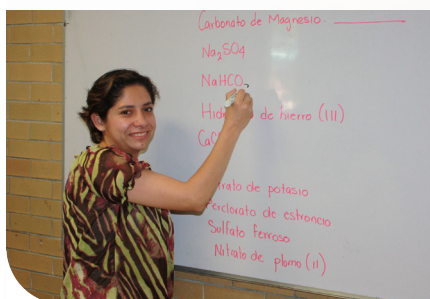 Carbonato de Magnesio
Na₂SO₄
NaHCO₃
de hierro (III)
de potasio
Perclorato de estroncio
Sulfato ferroso
Nitrato de plomo (II)